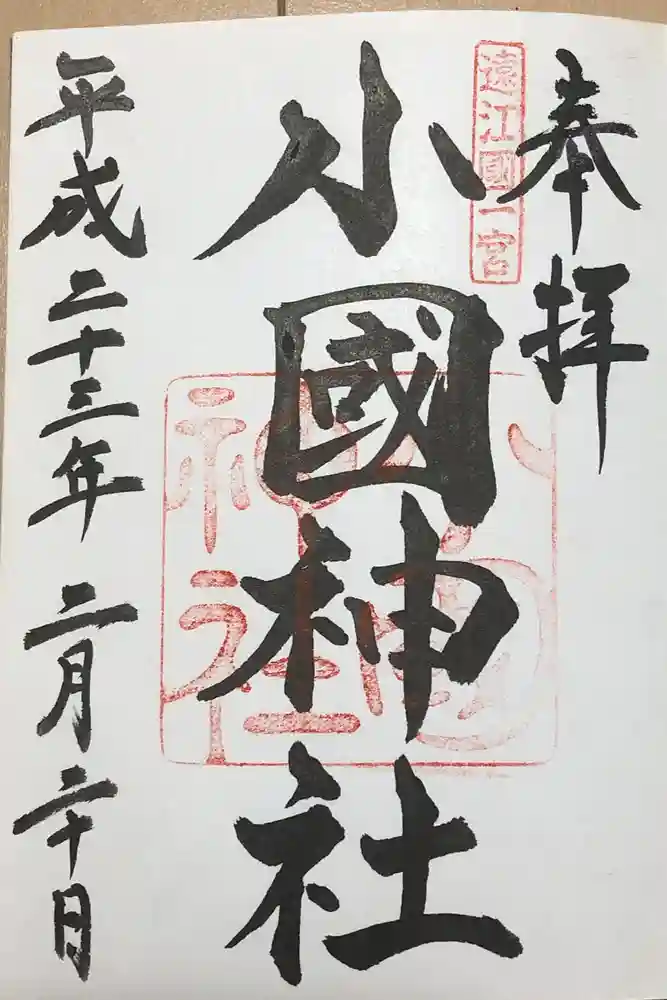 奉拝
遠江國一宮
小國神社
平成二十三年二月二十日
小國神社